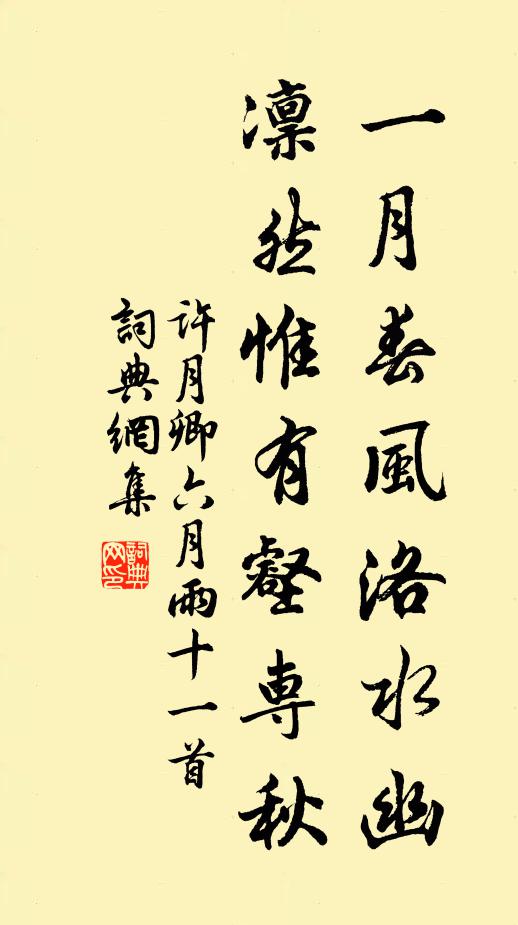 一月春風洛水幽
凛然惟有壑專秋
許月卿六月雨十一首
詞典網集
詞典网印